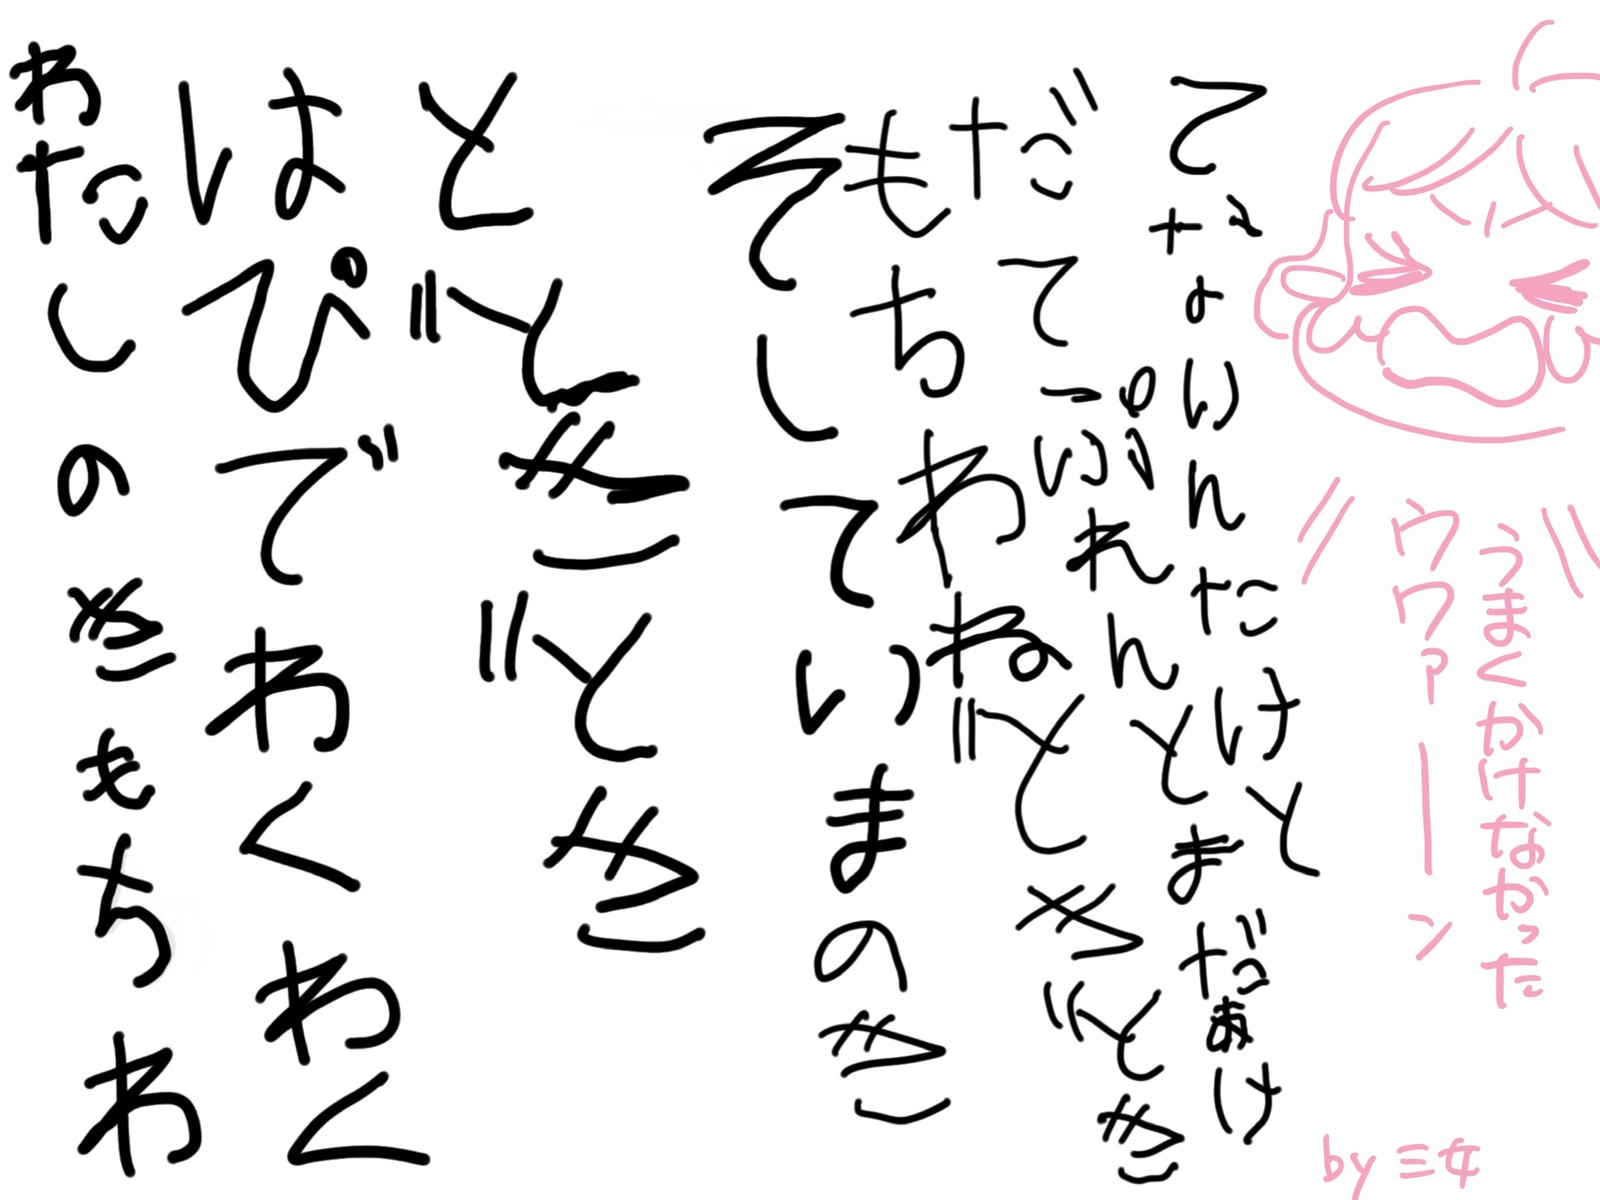 わたしのきもちわ
はぴでわくわく
とどきどき
そしていまのき
もちわねどきどき
だてっぷれんとまだあけ
てないんたけと
うまくかけなかった
ウワァーン
by 三女